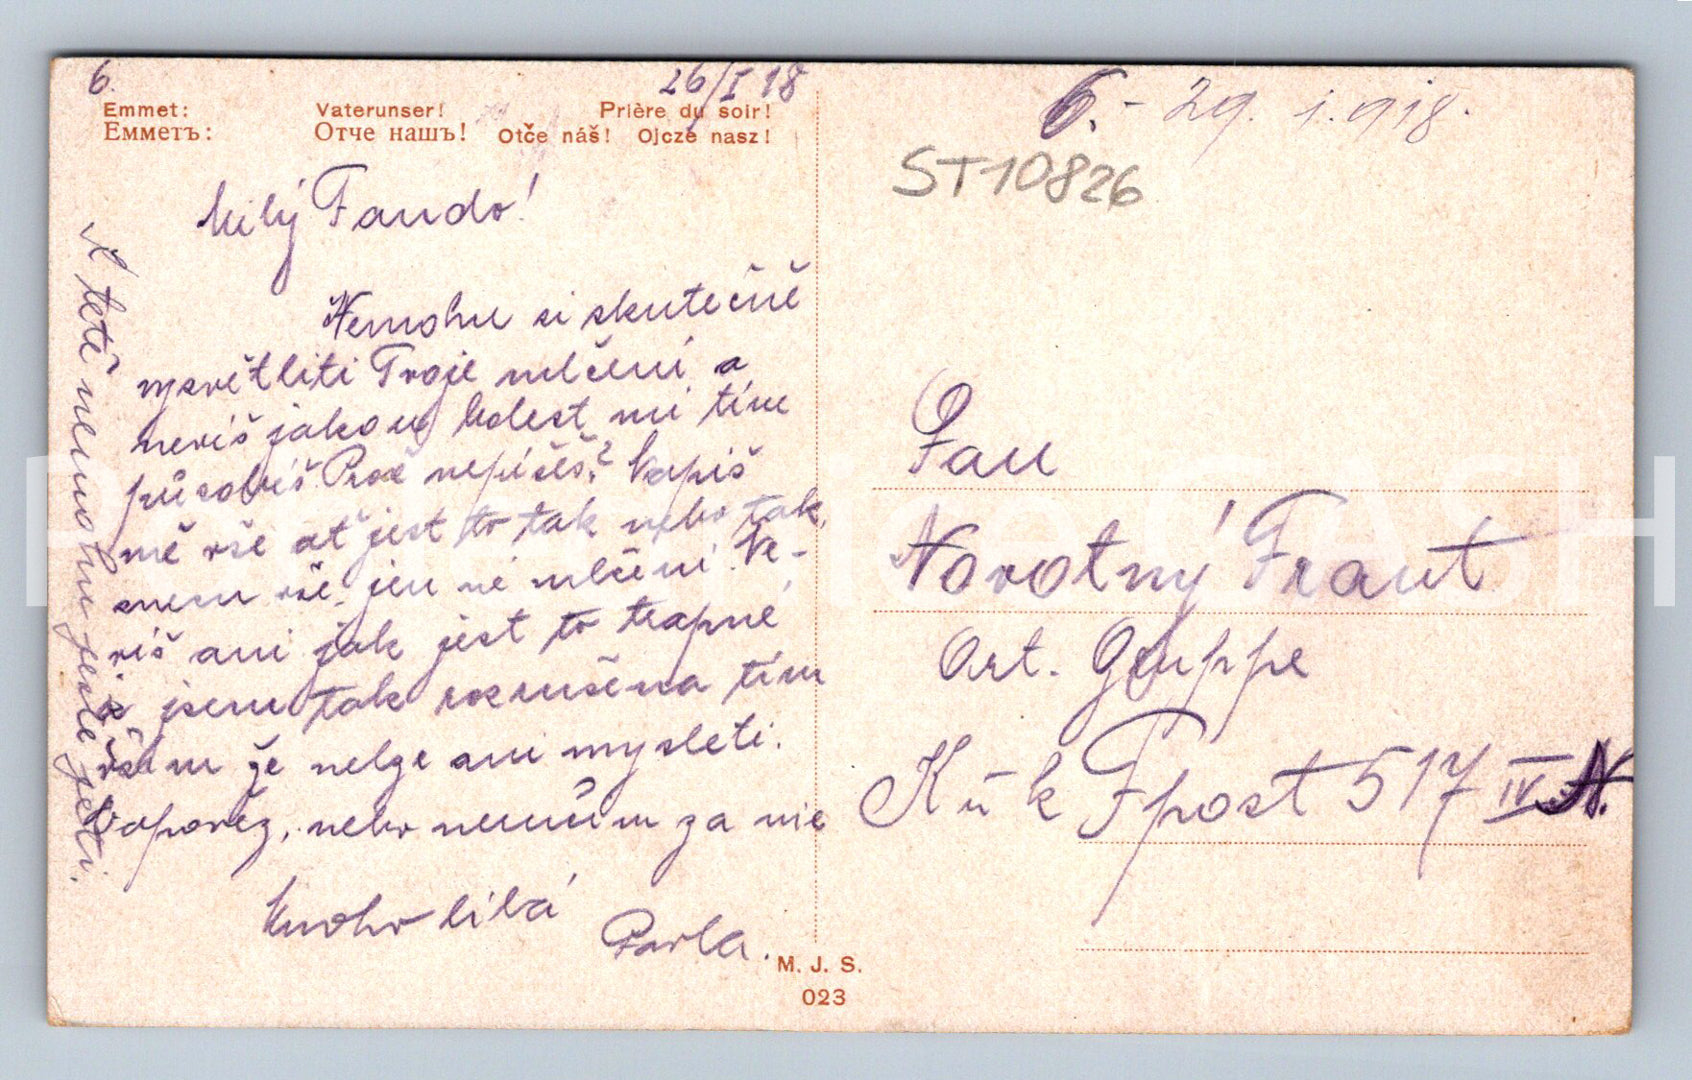 6.
26/I 18
Emmet: Vaterunser! Prière du soir!
Емметъ: Отче нашъ! Otče náš! Ojcze nasz!
Milý Fando!
Nemohu si skutečně
vysvětliti Tvoje mlčení a
nevíš jakou bolest mi tím
působíš Proč nepíšeš? Napiš
mě vše ať jest to tak nebo tak,
snesu vše, jen né mlčení. Ne-
víš ani jak jest to trapné
jsem tak rozrušena tím
vším že nelze ani mysleti.
Odpověz, nebo nemůžu za nic
Mnoho líbá
Pavla.
A teď nemohu ještě jeti.
M. J. S.
023
6. - 29. 1. 918.
ST10826
Pan
Novotný Frant
Art. Gruppe
K u k Fpost 517 IV. N.